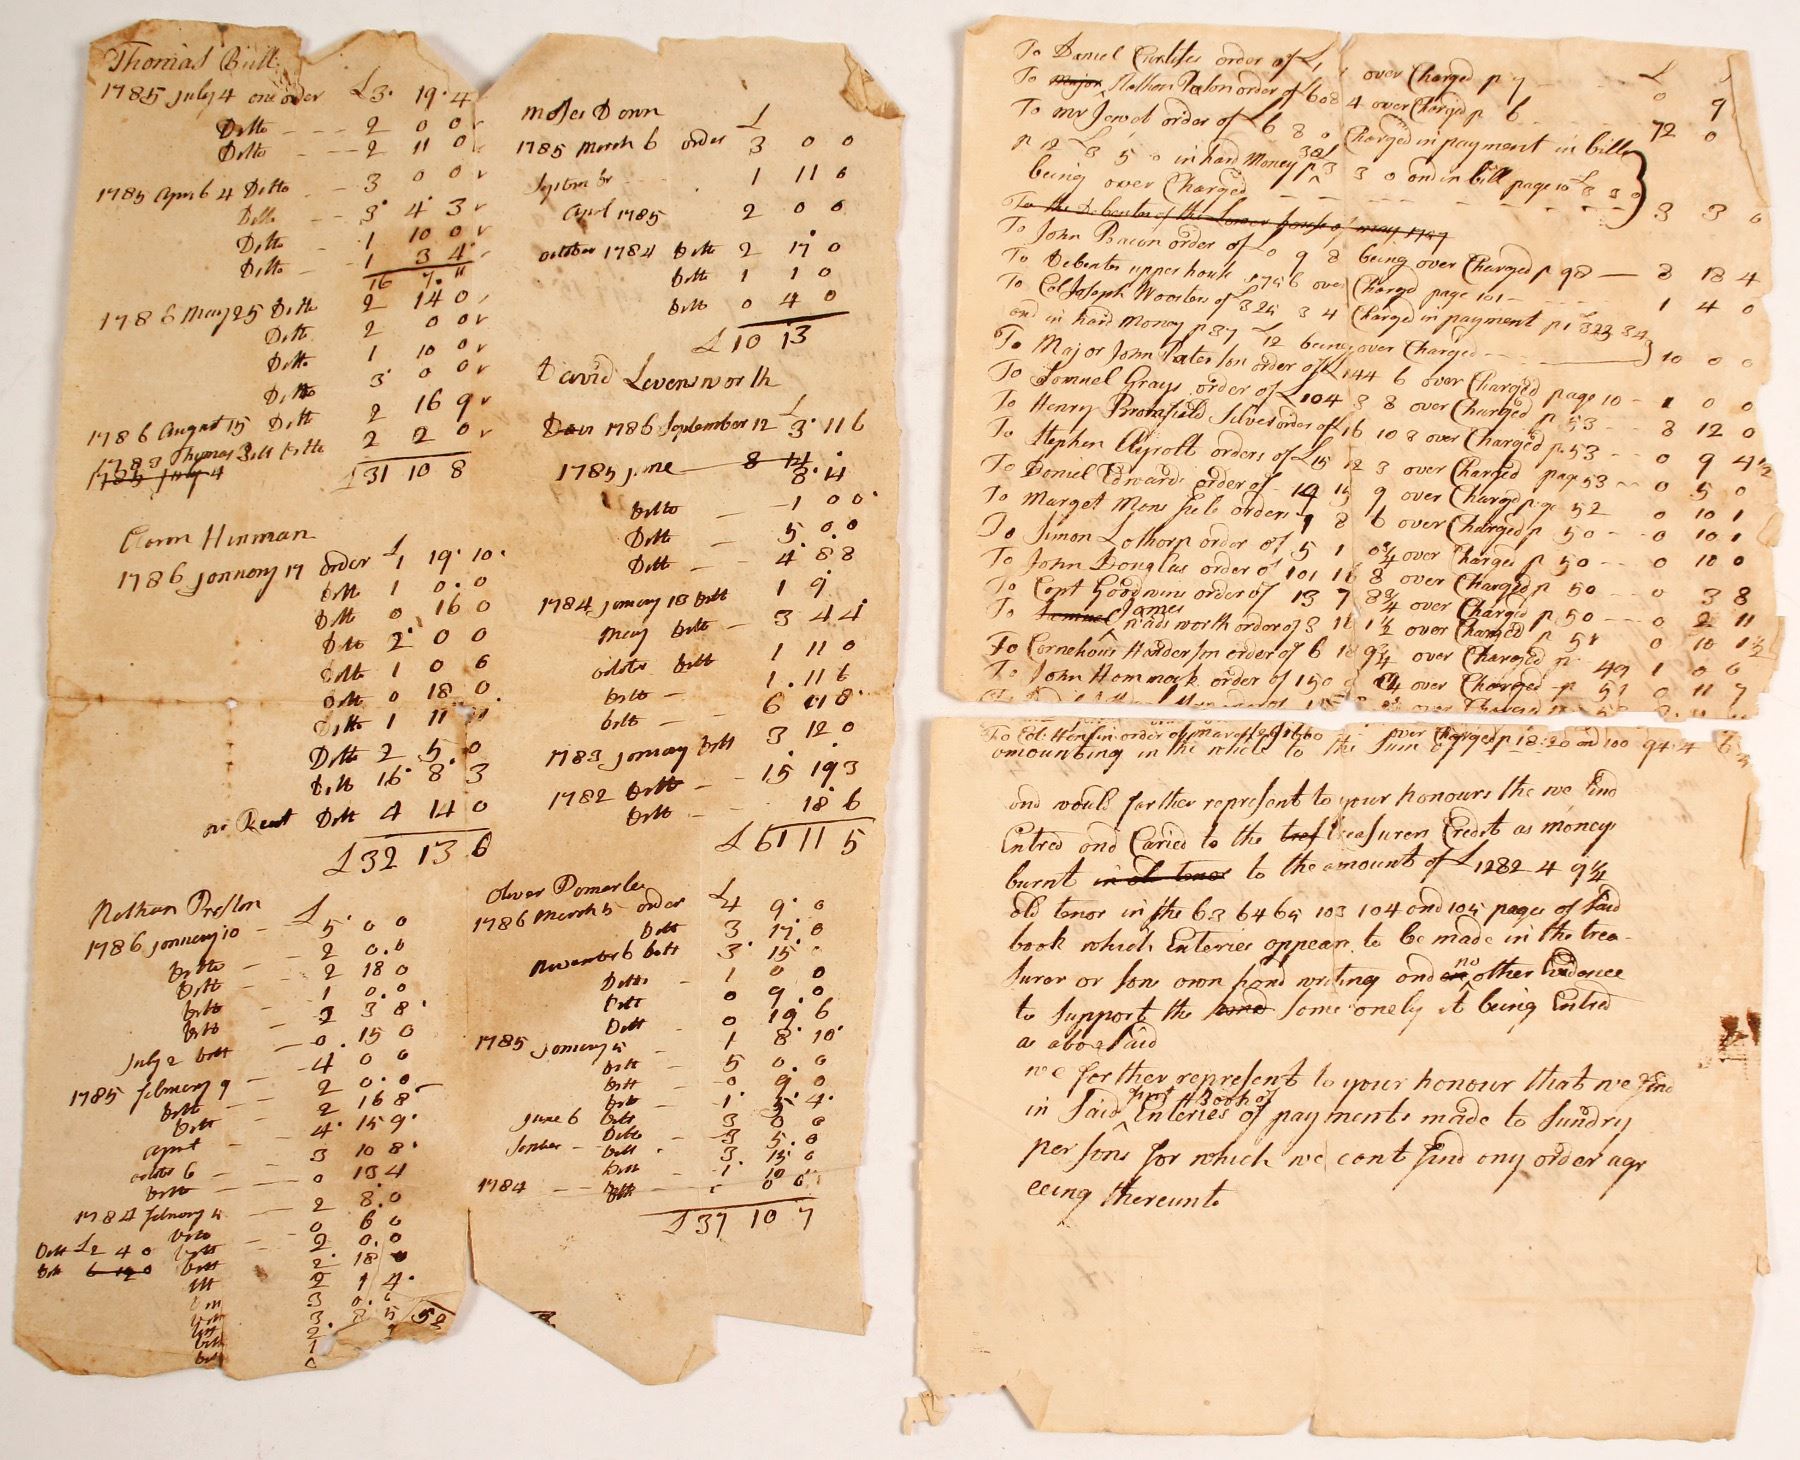 Thomas Bull
1785 July 4 one order £3 19 4
Ditto 2 0 0
Ditto 2 11 0
1785 Ditto 3 0 0
Ditto 3 4 3
Ditto 1 10 0
Ditto 1 3 4
16 7 11
1786 May 25 Ditto 2 14 0
Ditto 2 0 0
Ditto 1 10 0
Ditto 3 0 0
Ditto 2 16 9
1786 August 15 Ditto 2 2 0
1783 Thomas Bull Ditto
1785 July 4
£31 10 8
Aaron Hinman
1786 Jonnory 17 order £1 19 10
Ditto 1 0 0
Ditto 0 16 0
Ditto 2 0 0
Ditto 1 0 6
Ditto 0 18 0
Ditto 1 11 11
Ditto 2 5 0
Ditto 16 8 3
Ditt 4 14 0
£32 13 6
Nathan Preston £
1786 jonnery 10 5 0 0
Ditto 2 0 0
Ditt 2 18 0
Ditt 1 0 0
Ditt 2 3 8
July 2 Ditt 0 15 0
4 0 0
1785 febuery 9 2 0 0
Ditt 2 16 8
Ditt 4 15 9
3 10 8
0 13 4
1784 2 8 0
0 6 0
Ditt £2 4 0 Ditt 2 0 0
Ditt 6 12 0 Ditt 2 18 0
2 1 4
3 0 6
52
Moses Down £
1785 March 6 order 3 0 0
1 11 0
April 1785 2 0 0
october 1784 Ditt 2 17 0
Ditt 1 1 0
Ditt 0 4 0
£10 13
David Levensworth
£
1786 September 12 3 11 6
1785 June 8 14
8 14
Ditto 1 0 0
Ditt 5 0 0
Ditt 4 8 8
1784 Ditt 1 9
May Ditt 3 4 4
Ditt 1 11 0
Ditt 1 11 6
Ditt 6 8
1783 Ditt 3 12 0
1782 Ditt 15 19 3
Ditt 18 6
£61 11 5
Oliver Pomerlee
1786 March 5 order £4 9 0
Ditt 3 17 0
November 6 Ditt 3 15 0
Ditto 1 0 0
Ditt 0 9 0
Ditt 0 19 6
1785 1 8 10
Ditt 5 0 0
Ditt 0 9 0
Ditt 1 5 4
June 6 Ditt 3 0 0
Ditto 3 5 0
Ditt 3 15 0
Ditt 1 10
1784 Ditt 0 0
£37 10 7
To Daniel Curtises order of over Charged p 7 £
To Major Nathan order of 608 4 over Charged p 6 0 9
To Mr Jewol order of £6 8 0 Charged in payment in bills 72 0
p 12 £3 5 0 in hard Money p 38 £3 3 0 and in bill page 10 £8 3 0
being over Charged 3 3 0
To the Debenter of the Lower house of may 1757
To John Bacon order of 0 9 8 being over Charged p 98 8 18 4
To Debenter upper house 1756 over Charged page 101 1 4 0
To Col Joseph Woosters of £325 3 4 Charged in payment p 1 £323 3 4
and in hard Money p 37 £12 being over Charged 10 0 0
To Major John Paterson order of £144 6 over Charged page 10 1 0 0
To Somuel Grays order of £104 3 8 over Charged p 53 8 12 0
To Henry Bromfield Silver order of 16 10 8 over Charged p 53 0 9 4½
To Stephen orders of £15 12 3 over Charged page 53 0 5 0
To Daniel Edwards order of 14 15 9 over Charged page 52 0 10 1
To Marget orders 1 8 6 over Charged p 50 0 10 1
To Simon Lothorp order of 5 1 0¾ over Charged p 50 0 10 0
To John Douglas order of 101 16 8 over Charged p 50 0 3 8
To Capt Goodwins order of 13 7 8¾ over Charged p 50 0 2 11
To Samuel James wadsworth order of 3 11 1½ over Charged p 51 0 10 1½
To Cornehous Harderson order of 6 18 9¾ over Charged p 49 1 0 6
To John Hommack order of 150 over Charged p 51 0 11 7
over Charged p 18 20 and 100 94 4
amounting in the whole to the Sum of
and would farther represent to your honours the we find
Entred and Caried to the tref treasurers Credit as money
burnt in old tenor to the amount of £1282 4 9¼
old tenor in the 63 64 65 103 104 and 105 pages of Said
book which Enteries appear to be made in the trea-
surer or sons own hand writing and an no other Evidence
to support the same onely it being Entred
as aboe Said
we farther represent to your honour that we find
in Said first Book of Enteries of payments made to Sundry
persons for which we cant find any order agr
eeing thereunto